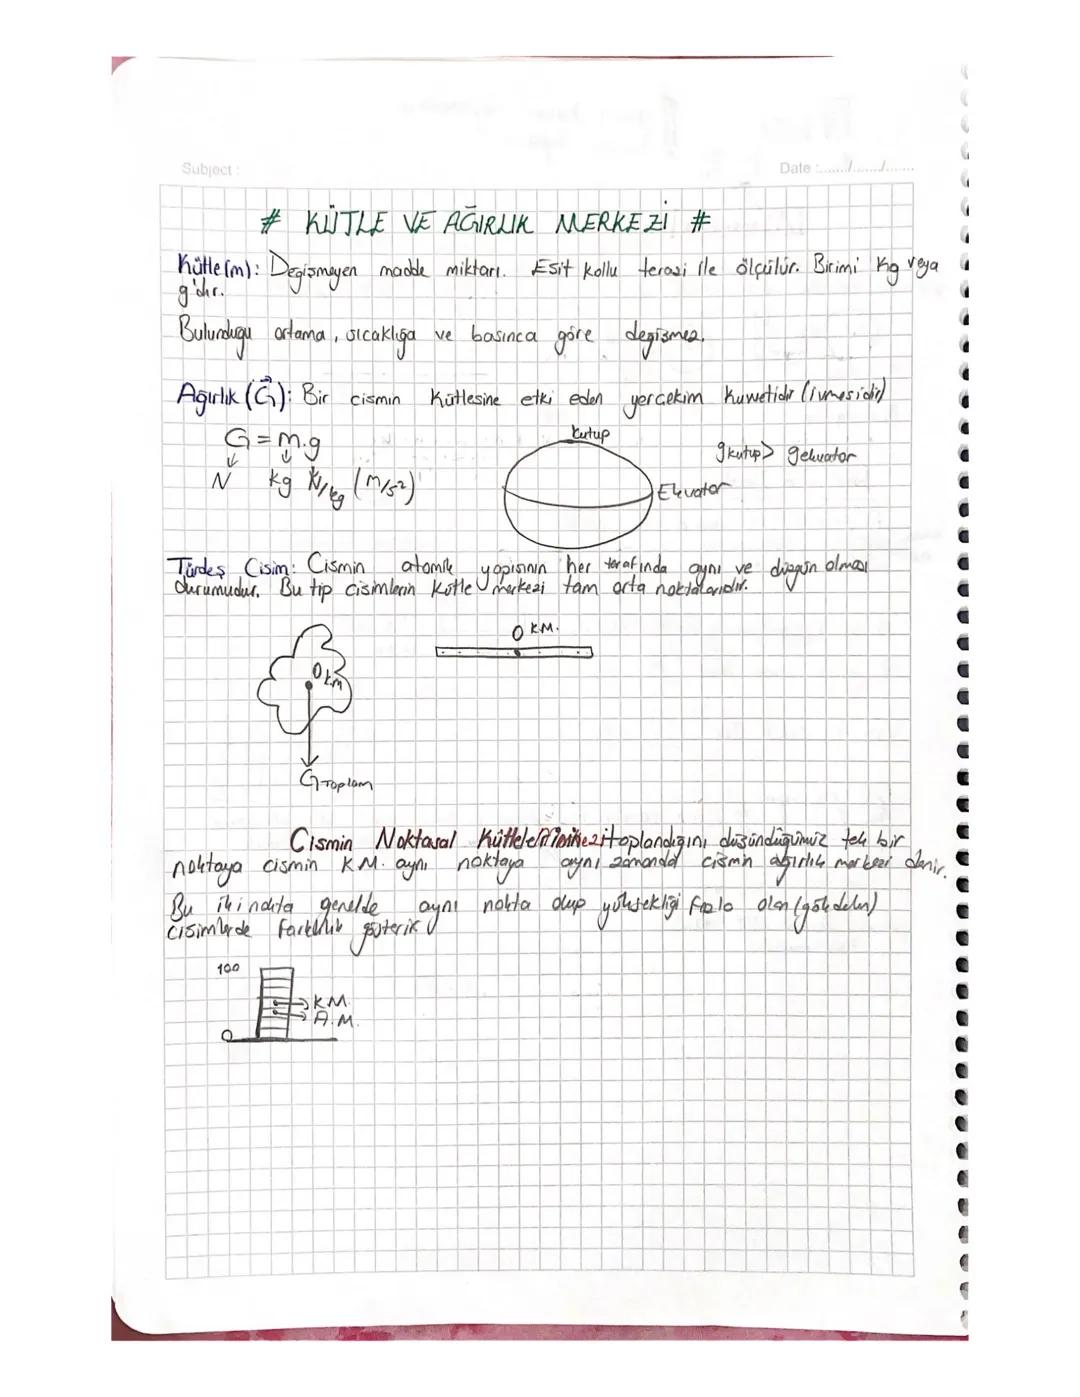 Subject :
Date :......./......./.......
# KÜTLE VE AĞIRLIK MERKEZİ #
Kütle(m): Değişmeyen madde miktarı. Eşit kollu terazi ile ölçülür. Birimi kg veya
g'dır.
Bulunduğu ortama, sıcaklığa ve basınca göre değişmez.
Ağırlık (G): Bir cismin kütlesine etki eden yerçekim kuvvetidir (ivmesidir)
Kutup
G = m.g
gkutup> gekvator
N kg N/kg (m/s²)
Ekvator
Türdeş Cisim: Cismin atomik yapısının her tarafında aynı ve düzgün olması
durumudur. Bu tip cisimlerin kütle merkezi tam orta noktalarıdır.
O K.M.
O K.M
G Toplam
Cismin Noktasal toplandığını düşündüğümüz tek bir
noktaya cismin K.M. aynı noktaya aynı zamanda cismin ağırlık merkezi denir.
Bu iki nokta genelde aynı nokta olup yüksekliği fazla olan (gökdelen)
cisimlerde farklılık gösterir
100
K.M.
A.M.
0